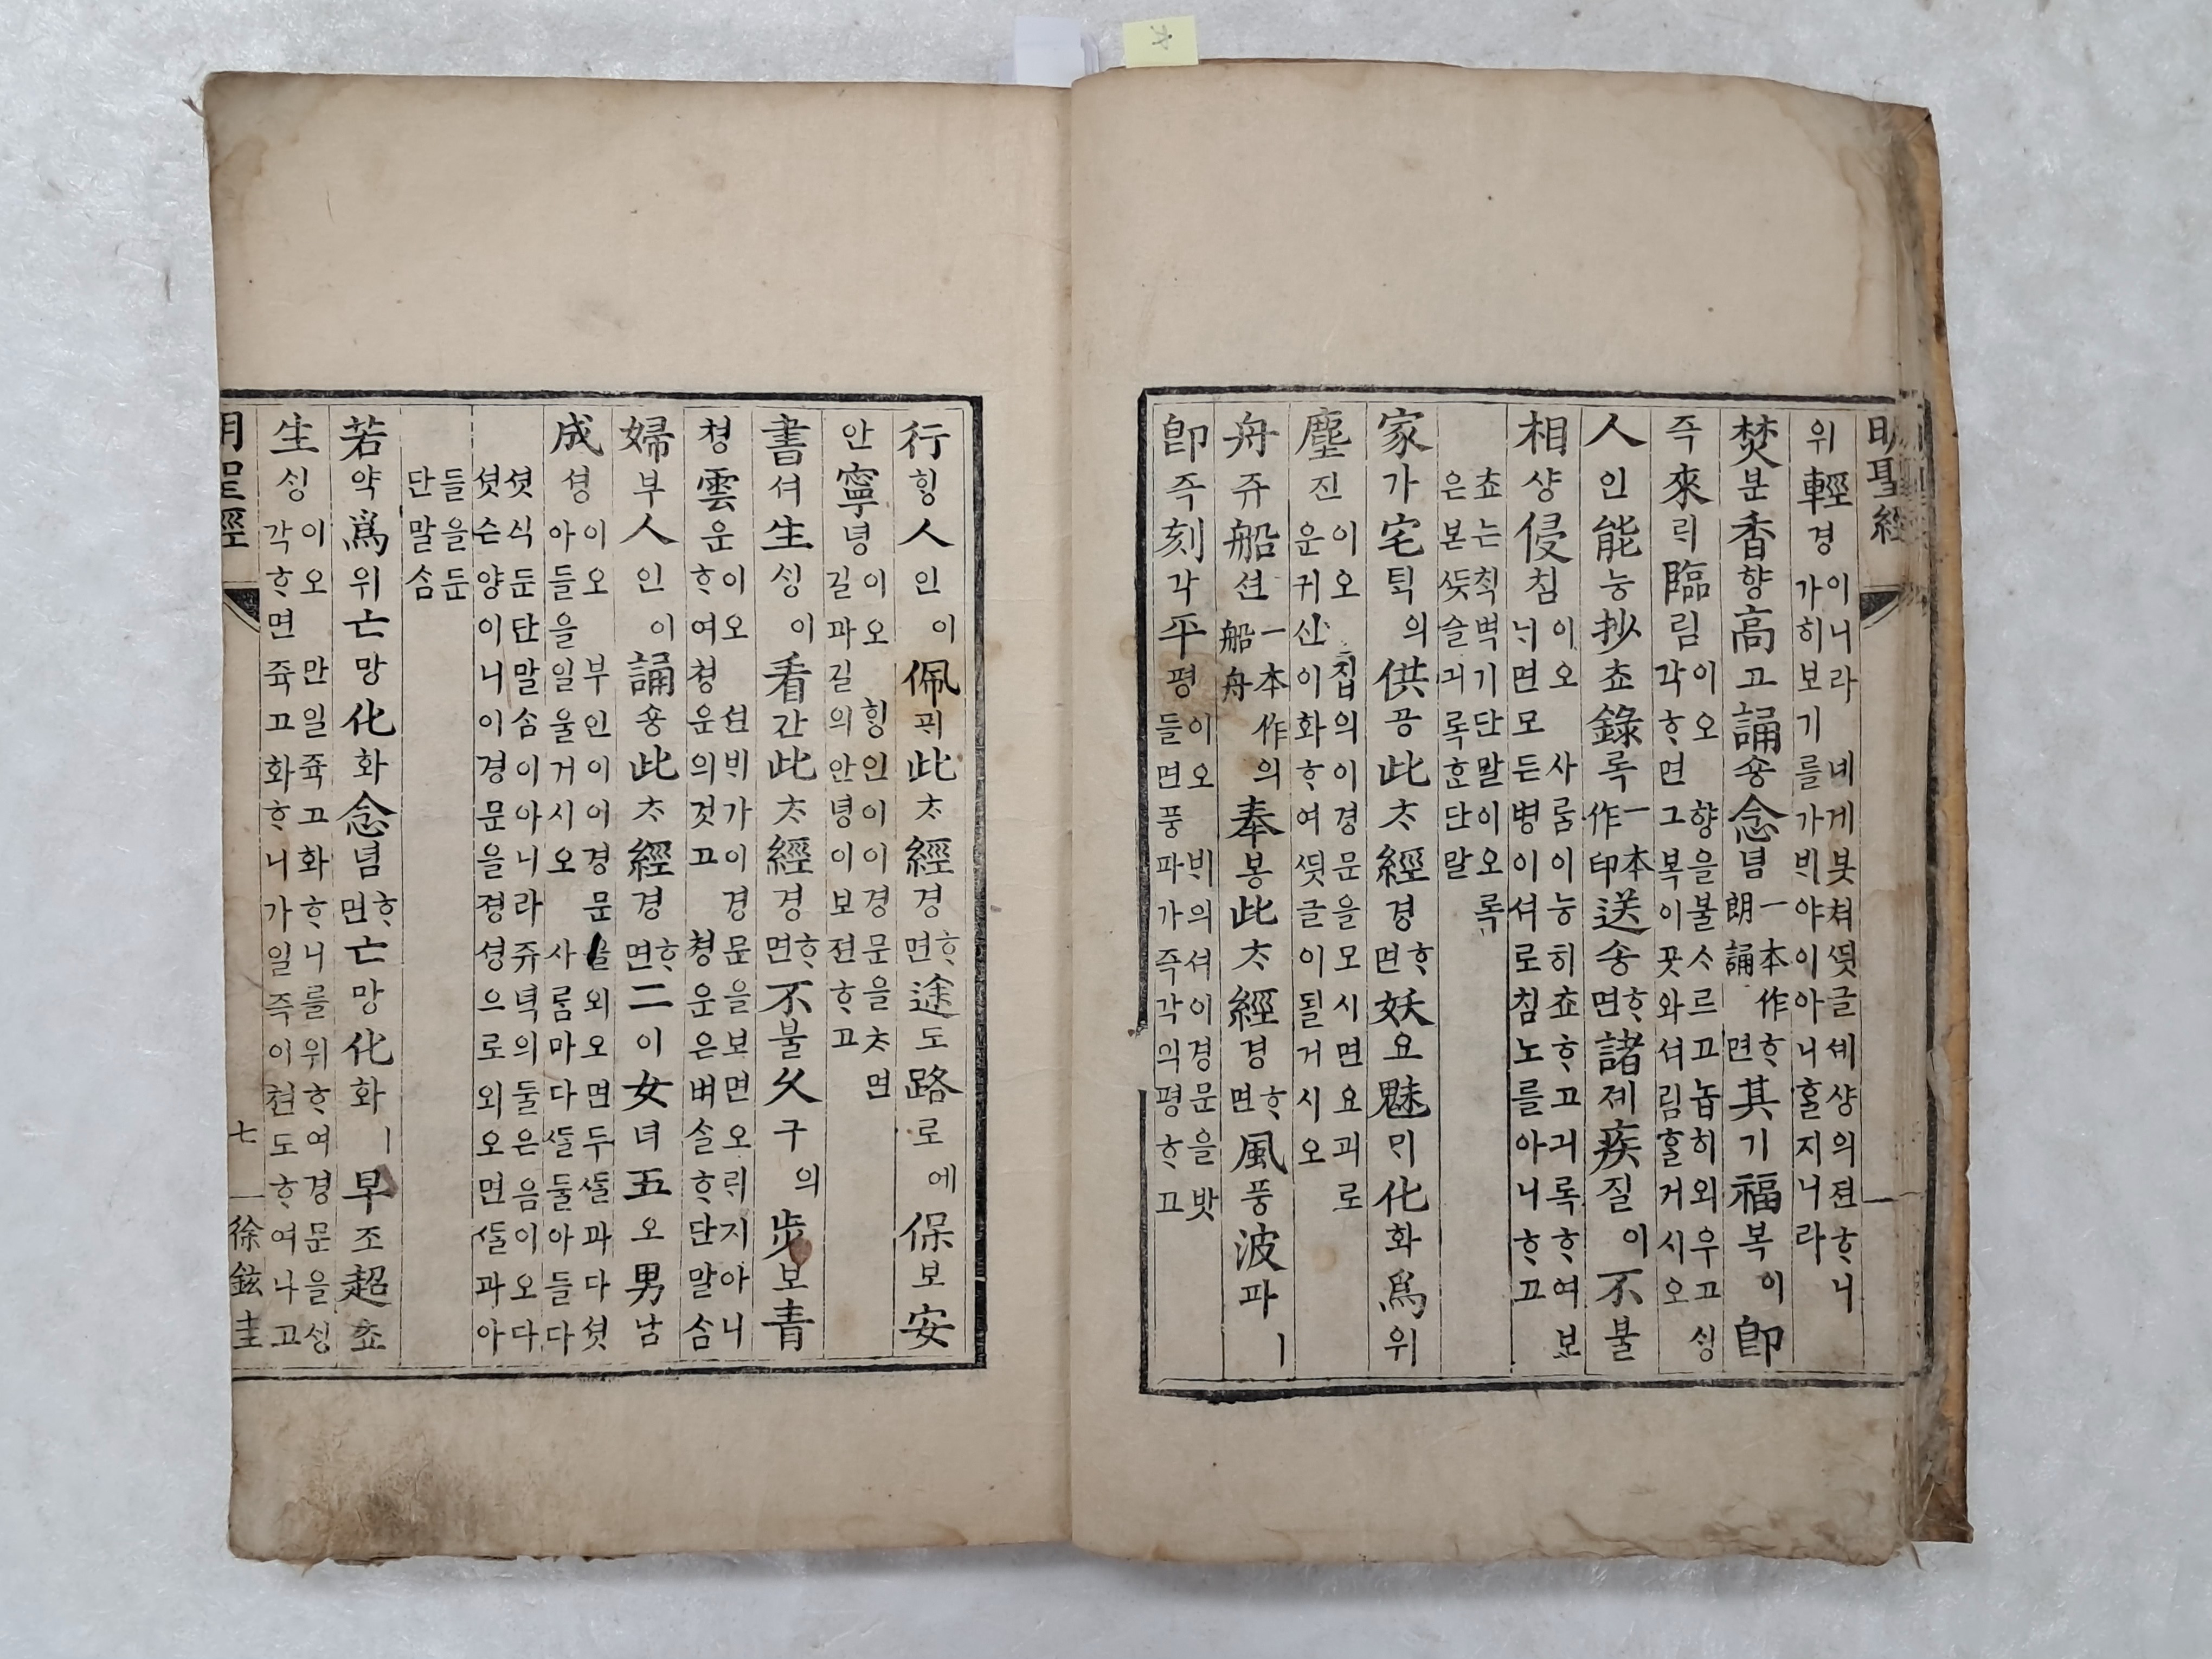 明聖經
위輕경이니라녜게붓쳐ᄯᅴᆺ글셰샹의젼ᄒᆞ니
가히보기를가ᄇᆡ야이아니홀지니라
焚분香향高고誦숑念념一本作朗誦ᄒᆞ면其기福복이卽
즉來ᄅᆡ臨림이오향을불ᄉᆞ르고놉히외우고ᄉᆡᆼ
각ᄒᆞ면그복이꼿와셔림홀거시오
人인能능抄쵸錄록一本作印送송ᄒᆞ면諸졔疾질이不불
相샹侵침이오사ᄅᆞᆷ이능히쵸ᄒᆞ고긔록ᄒᆞ여보
ᄂᆡ면모든병이셔로침노를아니ᄒᆞ고
쵸는ᄎᆡᆨ벽기단말이오록
은본ᄯᅳᆺ슬긔록ᄒᆞᆫ단말
家가宅ᄐᆡᆨ의供공此ᄎᆞ經경ᄒᆞ면妖요魅ᄆᆡ化화爲위
塵진이오집의이경문을모시면요괴로
운귀신이화ᄒᆞ여ᄯᅴᆺ글이될거시오
舟쥬船션一本作船舟의奉봉此ᄎᆞ經경ᄒᆞ면風풍波파ㅣ
卽즉刻각平평이오ᄇᆡ의셔이경문을밧
들면풍파가즉각의평ᄒᆞ고
行ᄒᆡᆼ人인이佩ᄑᆡ此ᄎᆞ經경ᄒᆞ면途도路로에保보安
안寧녕이오ᄒᆡᆼ인이이경문을ᄎᆞ면
길과길의안녕이보젼ᄒᆞ고
書셔生ᄉᆡᆼ이看간此ᄎᆞ經경ᄒᆞ면不불久구의步보青
쳥雲운이오션ᄇᆡ가이경문을보면오ᄅᆡ지아니
ᄒᆞ여쳥운의것고쳥운은벼슬ᄒᆞ단말ᄉᆞᆷ
婦부人인이誦숑此ᄎᆞ經경ᄒᆞ면二이女녀五오男남
成셩이오부인이어경문을외오면두ᄯᆞᆯ과다셧
아들을일울거시오사ᄅᆞᆷ마다ᄯᆞᆯ둘아들다
셧식둔단말ᄉᆞᆷ이아니라쥬녁의둘은음이오다
셧슨양이니이경문을졍셩으로외오면ᄯᆞᆯ과아
들을둔
단말ᄉᆞᆷ
若약爲위亡망化화念념ᄒᆞ면亡망化화ㅣ早조超쵸
生ᄉᆡᆼ이오만일쥭고화ᄒᆞ니를위ᄒᆞ여경문을ᄉᆡᆼ
각ᄒᆞ면쥭고화ᄒᆞ니가일즉이쳔도ᄒᆞ여나고
明聖經 七 徐鉉圭